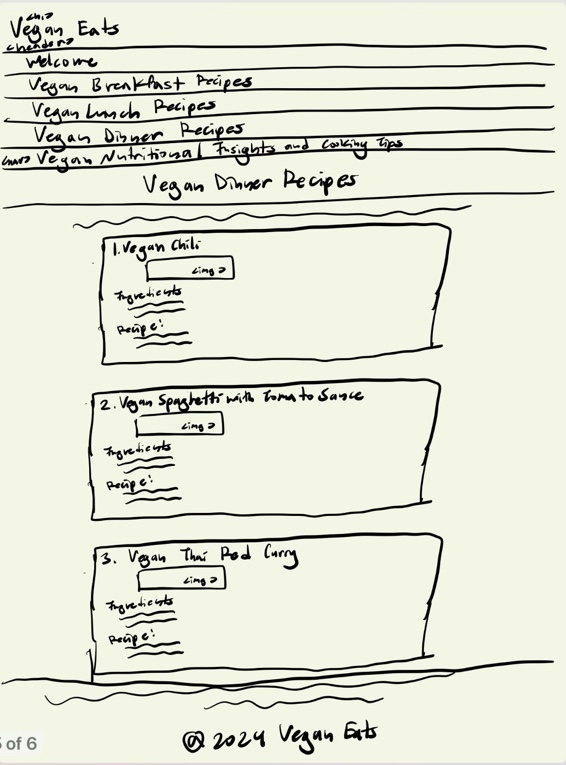 <h1>
Vegan Eats
<header>
Welcome
Vegan Breakfast Recipes
Vegan Lunch Recipes
Vegan Dinner Recipes
<nav> Vegan Nutritional Insights and Cooking Tips
Vegan Dinner Recipes
1. Vegan Chili
<img>
Ingredients
Recipe:
2. Vegan Spaghetti with Tomato Sauce
<img>
Ingredients
Recipe:
3. Vegan Thai Red Curry
<img>
Ingredients
Recipe:
@ 2024 Vegan Eats
of 6